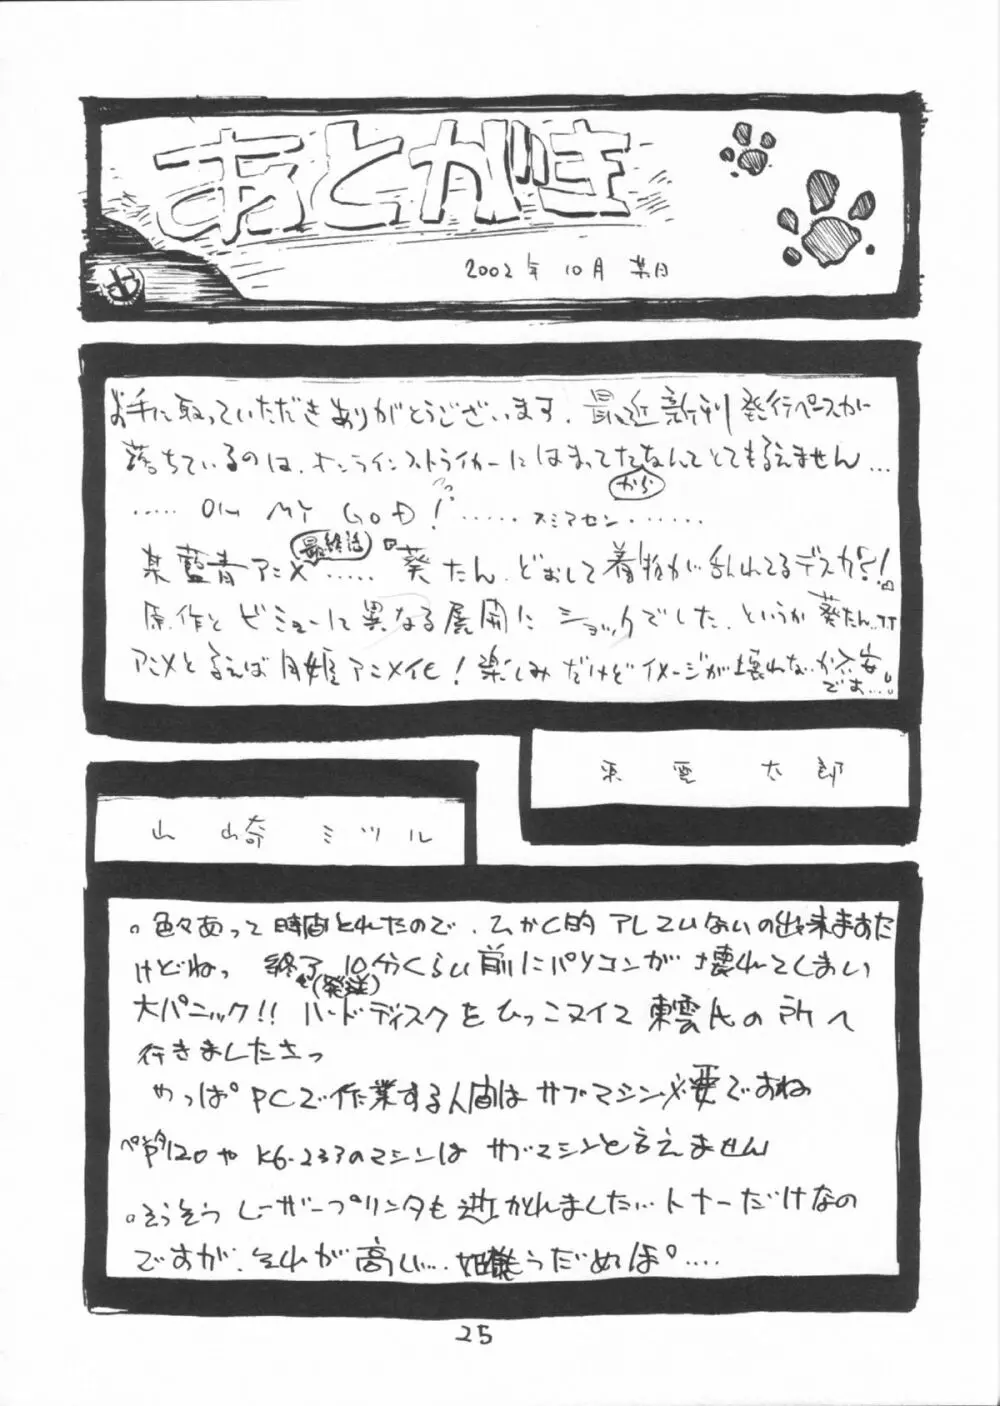 あとがき
2002年10月某日
お手に取っていただきありがとうございます．最近新刊発行ペースが
落ちているのは、オンラインストライカーにはまってたからなんてとても言えません…
…… OH MY GOD！……スミマセン……
某藍青アニメ最終話……葵たん、どおして着物が乱れてるデスカ？！
原作とビミョーに異なる展開にショックでした、というか葵たん…
アニメと言えば月姫アニメ化！楽しみだけどイメージが壊れないか不安
です…。
東雲太郎
山崎ミツル
。色々あって時間とれたので、
けどねっ 終了(発送)10分くらい前にパソコンが壊れてしまい
大パニック!! ハードディスクをひっこヌイて東雲氏の所へ
行きましたさっ
やっぱPCで作業する人間はサブマシン必要ですね
120やK6-233のマシンはサブマシンと言えません
。そうそうレーザープリンタも逝かれました… トナーだけなの
ですが、それが高い… もうだめぽ….
25